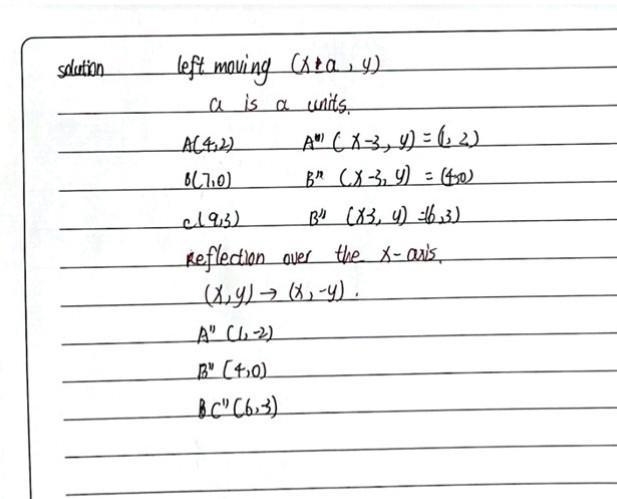 solution left moving (x±a, y)
a is a units.
A(4,2) A''' (x-3, y) = (1, 2)
B(7,0) B'' (x-3, y) = (4,0)
C(9,3) B'' (x3, y) = (6,3)
Reflection over the x-axis.
(x,y) → (x,-y).
A'' (1,-2)
B'' (4,0)
B C'' (6,3)